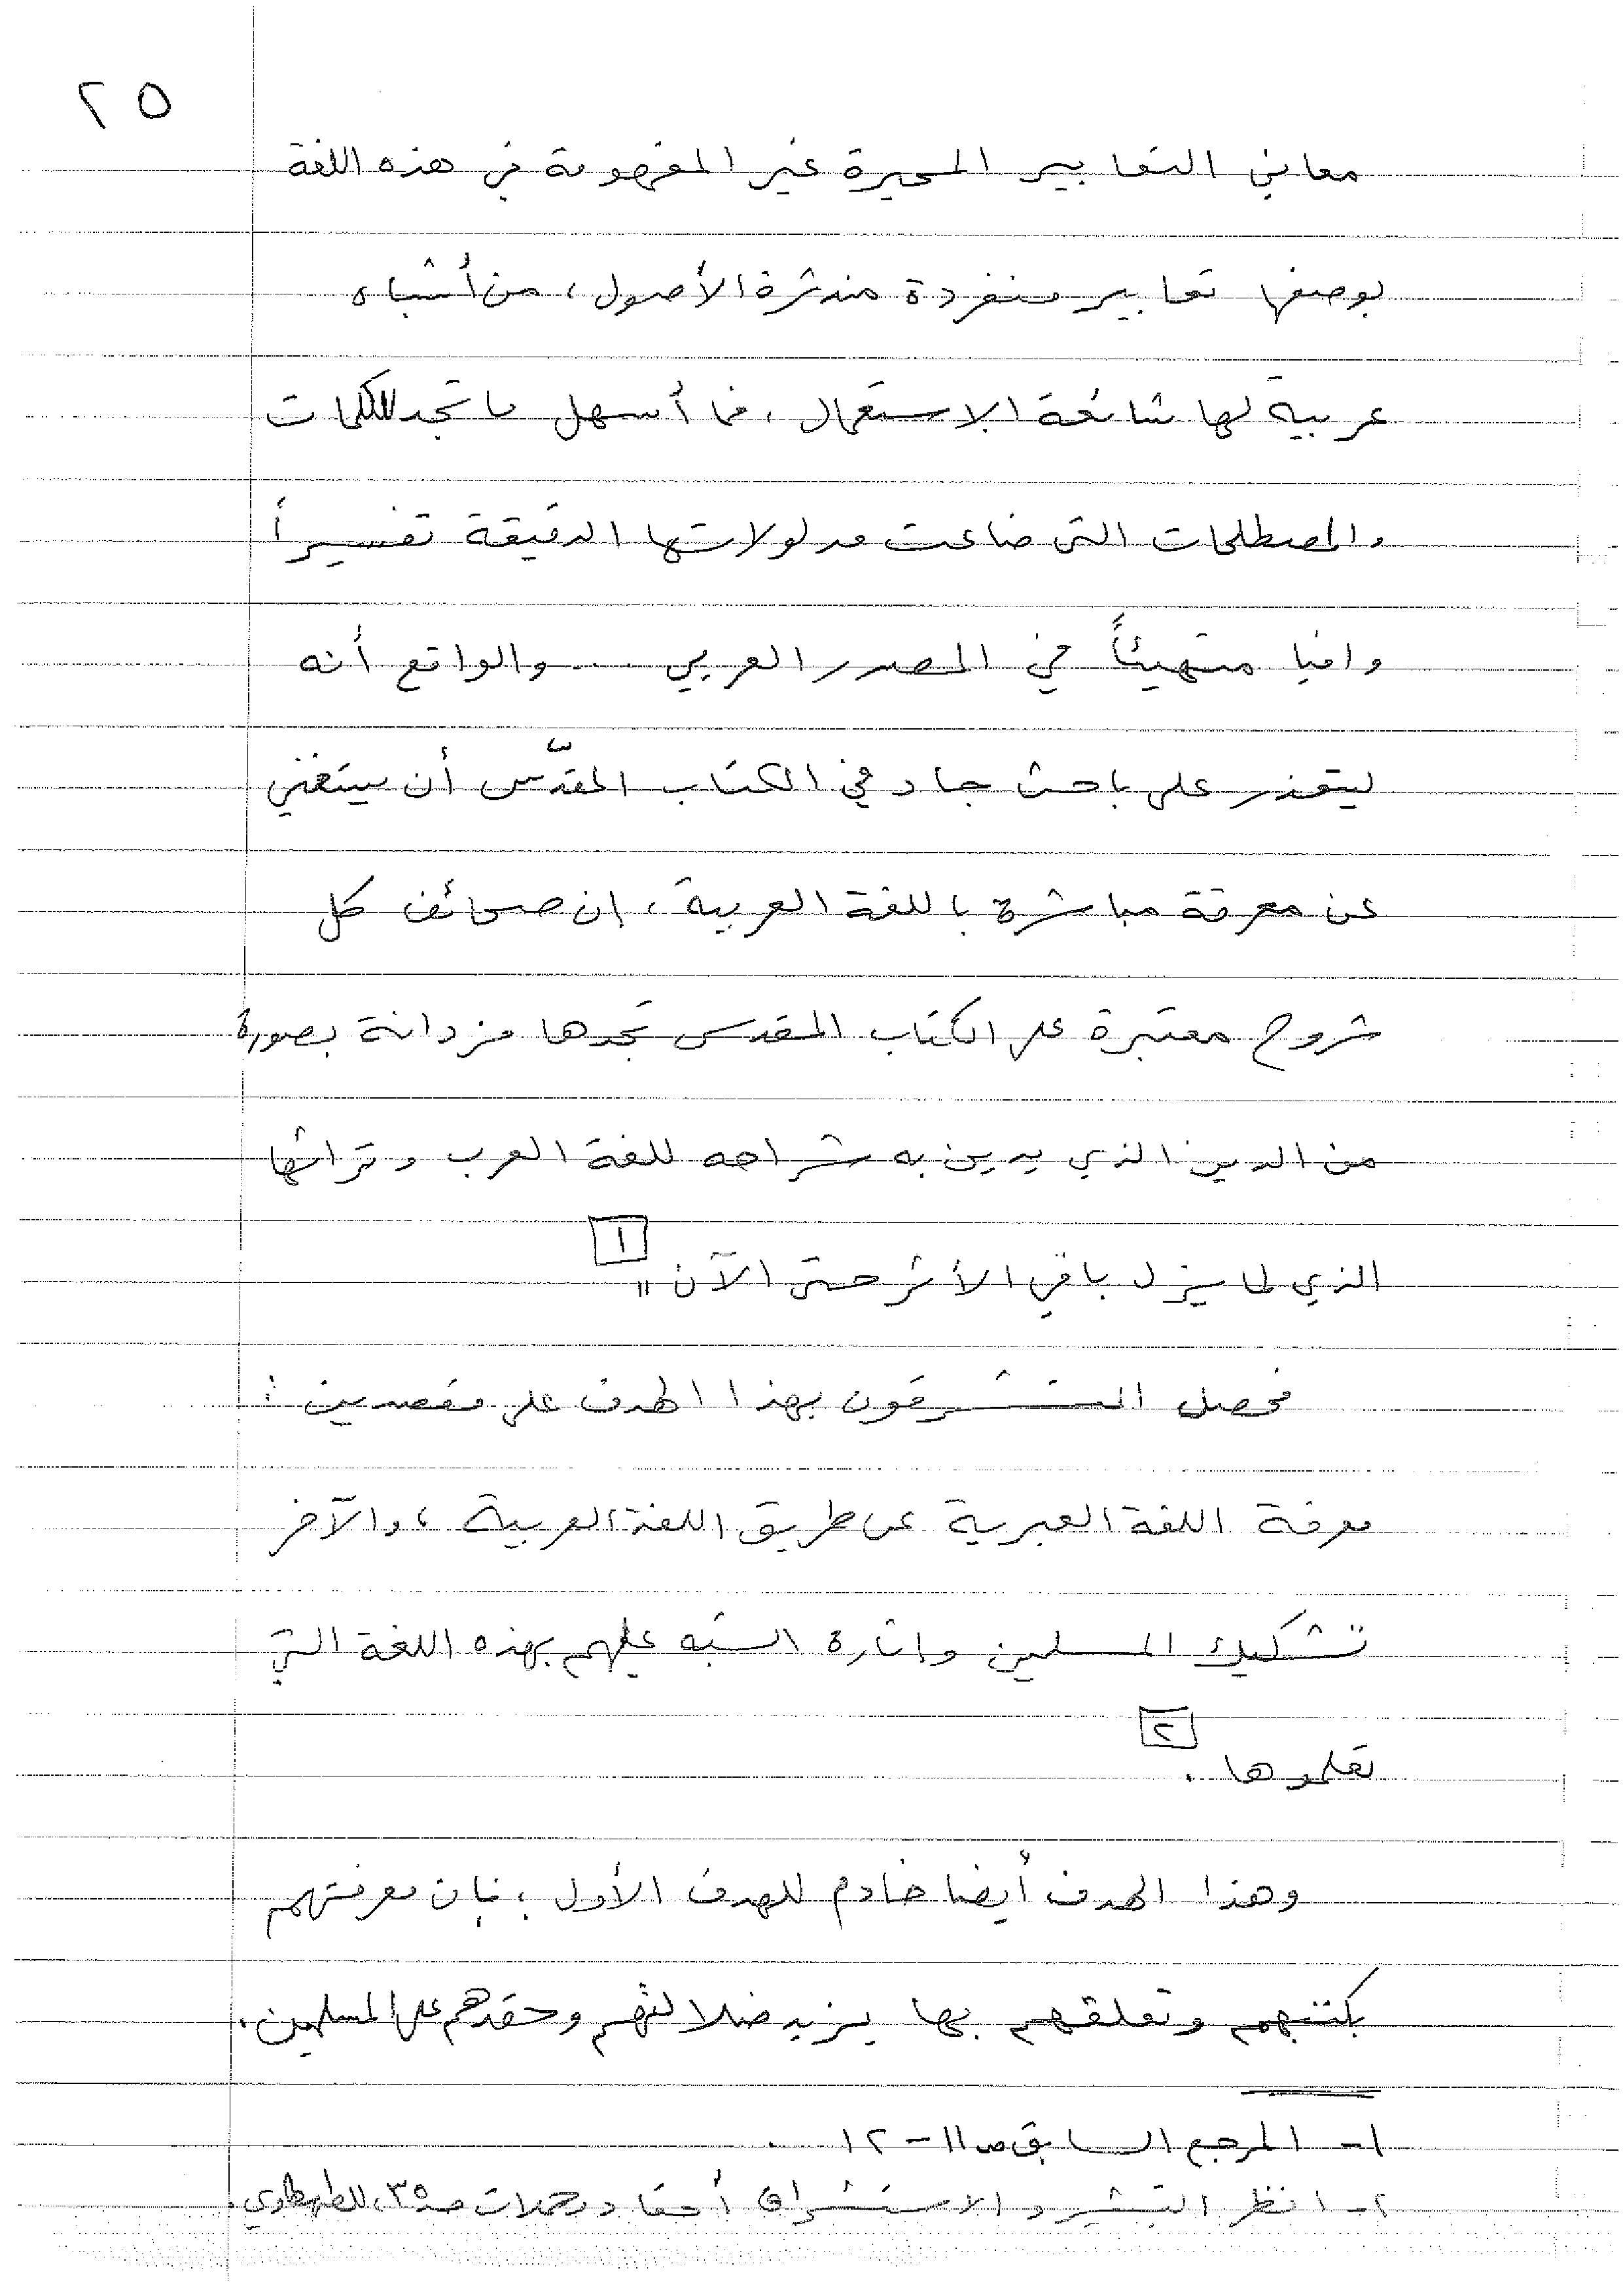 ٢٥
معاني التعابير المحيرة غير المفهومة في هذه اللغة
بوصفها تعابير منفردة مندثرة الأصول، من أشباه
عربية لها شائعة الاستعمال، فما أسهل ما تجد للكلمات
والمصطلحات التي ضاعت مدلولاتها الدقيقة تفسيراً
وافيا متهيئاً في المصدر العربي ... والواقع أنه
ليتعذر على باحث جاد في الكتاب المقدّس أن يستغني
عن معرفة مباشرة باللغة العربية، إن صحائف كل
شروح معتبرة على الكتاب المقدس تجدها مزدانة بصورة
من الدين الذي يدين به شراحه للغة العرب وتراثها
الذي لما يزل باقي الأثر حتى الآن" [١]
فحصل المستشرقون بهذا الهدف على مقصدين :
معرفة اللغة العبرية عن طريق اللغة العربية، والآخر
تشكيك المسلمين واثارة الشبه عليهم بهذه اللغة التي
تعلموها. [٢]
وهذا الهدف أيضا خادم للهدف الأول؛ فإن معرفتهم
بكتبهم وتعلقهم بها يزيد ضلالتهم وحقدهم على المسلمين.
١- المرجع السابق ص ١١-١٢ .
٢- انظر التبشير والاستشراق أحقاد وحملات صـ ٣٥، للطهطاوي.